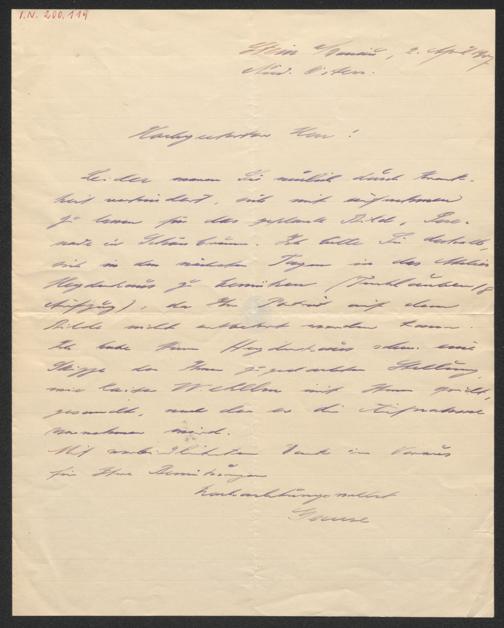 I.N. 200.119
Stein a/Donau, 2. April
Nied. Österr.
Hochgeehrter Herr!
Leider waren Sie neulich durch Krank-
heit verhindert, sich mit aufnehmen
zu lassen für das geplante Bild,
in Schönbrunn. Ich bitte Sie deshalb,
sich in den nächsten Tagen in das Atelier
zu bemühen (Tuchlauben
Aufzug), da Ihr Porträt auf dem
Bilde nicht entbehrt werden kann.
Ich habe Herrn schon eine
Skizze der Ihnen zugedachten Stellung,
wie Kaiser Wilhelm mit Ihnen spricht,
gesandt, nach der er die Aufnahme
vornehmen wird.
Mit verbindlichstem Dank im Voraus
für Ihre Bemühungen
hochachtungsvollst